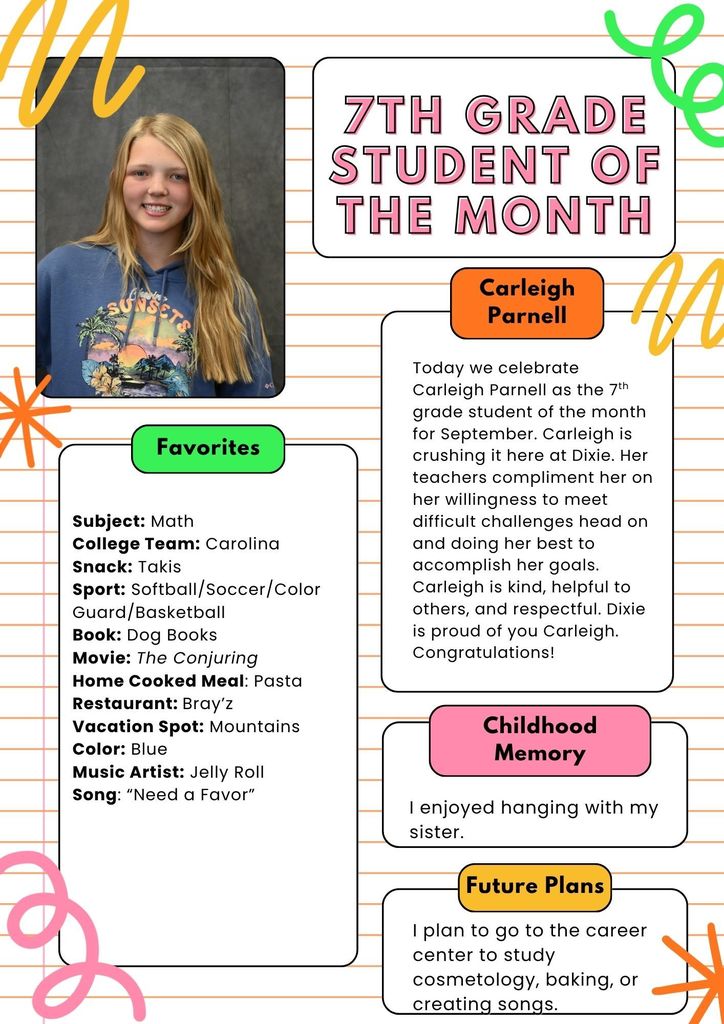 7TH GRADE
STUDENT OF
THE MONTH
SUNSETS
Carleigh
Parnell
Today we celebrate
Carleigh Parnell as the 7th
grade student of the month
for September. Carleigh is
crushing it here at Dixie. Her
teachers compliment her on
her willingness to meet
difficult challenges head on
and doing her best to
accomplish her goals.
Carleigh is kind, helpful to
others, and respectful. Dixie
is proud of you Carleigh.
Congratulations!
Favorites
Subject: Math
College Team: Carolina
Snack: Takis
Sport: Softball/Soccer/Color
Guard/Basketball
Book: Dog Books
Movie: The Conjuring
Home Cooked Meal: Pasta
Restaurant: Bray’z
Vacation Spot: Mountains
Color: Blue
Music Artist: Jelly Roll
Song: “Need a Favor”
Childhood
Memory
I enjoyed hanging with my
sister.
Future Plans
I plan to go to the career
center to study
cosmetology, baking, or
creating songs.